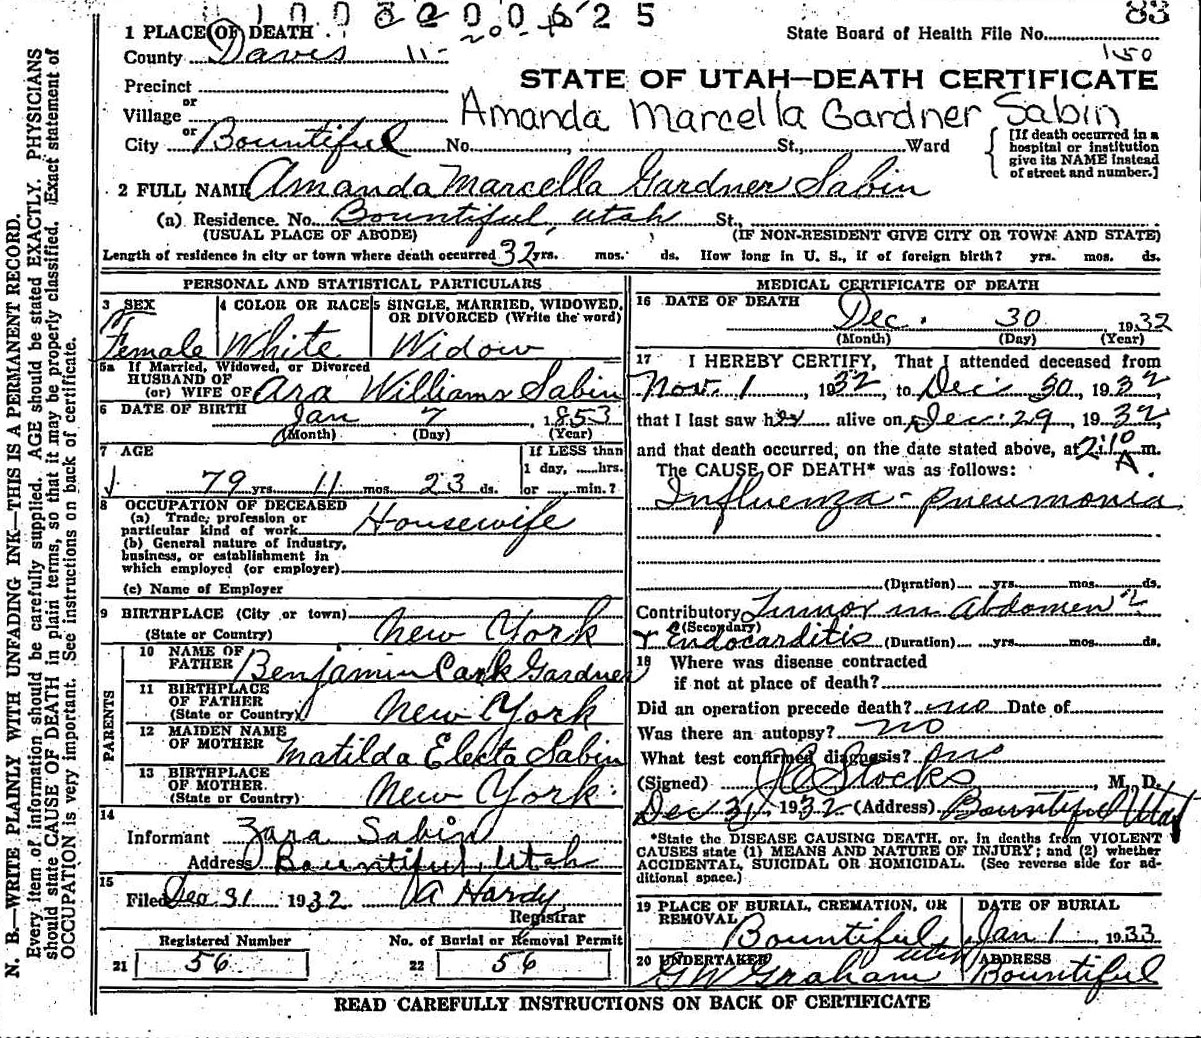 1 0 0 3 2 0 0 6 2 5
83
1 PLACE OF DEATH
20-
State Board of Health File No.
150
County Davis 11-
STATE OF UTAH—DEATH CERTIFICATE
Precinct
or
Village
Amanda Marcella Gardner Sabin
or
City Bountiful No. , St., Ward
[If death occurred in a hospital or institution give its NAME instead of street and number.]
2 FULL NAME Amanda Marcella Gardner Sabin
(a) Residence. No. Bountiful, Utah St,
(USUAL PLACE OF ABODE) (IF NON-RESIDENT GIVE CITY OR TOWN AND STATE)
Length of residence in city or town where death occurred 32 yrs. mos. ds. How long in U. S., if of foreign birth? yrs. mos. ds.
PERSONAL AND STATISTICAL PARTICULARS
3 SEX
Female
4 COLOR OR RACE
White
5 SINGLE, MARRIED, WIDOWED,
OR DIVORCED (Write the word)
Widow
5a If Married, Widowed, or Divorced
HUSBAND OF
(or) WIFE OF Ara Williams Sabin
6 DATE OF BIRTH Jan 7, 1853
(Month) (Day) (Year)
7 AGE
79 yrs 11 mos 23 ds.
If LESS than
1 day, ......hrs.
or ......min.?
8 OCCUPATION OF DECEASED
(a) Trade, profession or
particular kind of work Housewife
(b) General nature of industry,
business, or establishment in
which employed (or employer)
(c) Name of Employer
9 BIRTHPLACE (City or town)
(State or Country) New York
PARENTS
10 NAME OF
FATHER Benjamin Cark Gardner
11 BIRTHPLACE
OF FATHER
(State or Country) New York
12 MAIDEN NAME
OF MOTHER Matilda Electa Sabin
13 BIRTHPLACE
OF MOTHER
(State or Country) New York
14
Informant Zara Sabin
Address Bountiful, Utah
15
Filed Dec 31 1932 Hardy
Registrar
Registered Number
21 56
No. of Burial or Removal Permit
22 56
MEDICAL CERTIFICATE OF DEATH
16 DATE OF DEATH
Dec. 30, 1932
(Month) (Day) (Year)
17 I HEREBY CERTIFY, That I attended deceased from
Nov. 1, 1932, to Dec 30, 1932,
that I last saw her alive on Dec. 29, 1932,
and that death occurred, on the date stated above, at 2:10 A m.
The CAUSE OF DEATH* was as follows:
Influenza - Pneumonia
(Duration) yrs. mos. ds.
Contributory Tumor in Abdomen
(Secondary)
Endocarditis (Duration) yrs. mos. ds.
18 Where was disease contracted
if not at place of death?
Did an operation precede death? no Date of
Was there an autopsy? no
What test confirmed diagnosis?
(Signed) Stocks, M. D.
Dec 31, 1932 (Address) Bountiful Utah
*State the DISEASE CAUSING DEATH, or, in deaths from VIOLENT
CAUSES state (1) MEANS AND NATURE OF INJURY; and (2) whether
ACCIDENTAL, SUICIDAL OR HOMICIDAL. (See reverse side for ad-
ditional space.)
19 PLACE OF BURIAL, CREMATION, OR
REMOVAL Bountiful Utah
DATE OF BURIAL
Jan 1 1933
20 UNDERTAKER
GW Graham
ADDRESS
Bountiful
READ CAREFULLY INSTRUCTIONS ON BACK OF CERTIFICATE
N. B.—WRITE PLAINLY WITH UNFADING INK—THIS IS A PERMANENT RECORD.
Every item of information should be carefully supplied. AGE should be stated EXACTLY. PHYSICIANS
should state CAUSE OF DEATH in plain terms, so that it may be properly classified. Exact statement of
OCCUPATION is very important. See instructions on back of certificate.